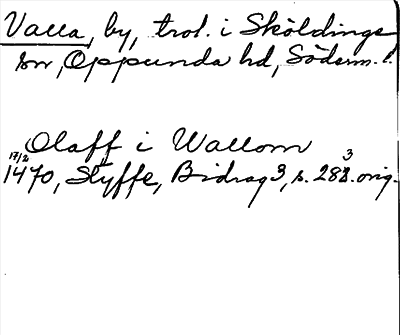 Valla, by, trol. i Sköldinge
sn, Oppunda hd, Söderm. l.
Olaff i Wallom
17/2 1470, Styffe, Bidrag 3, s. 283. orig.